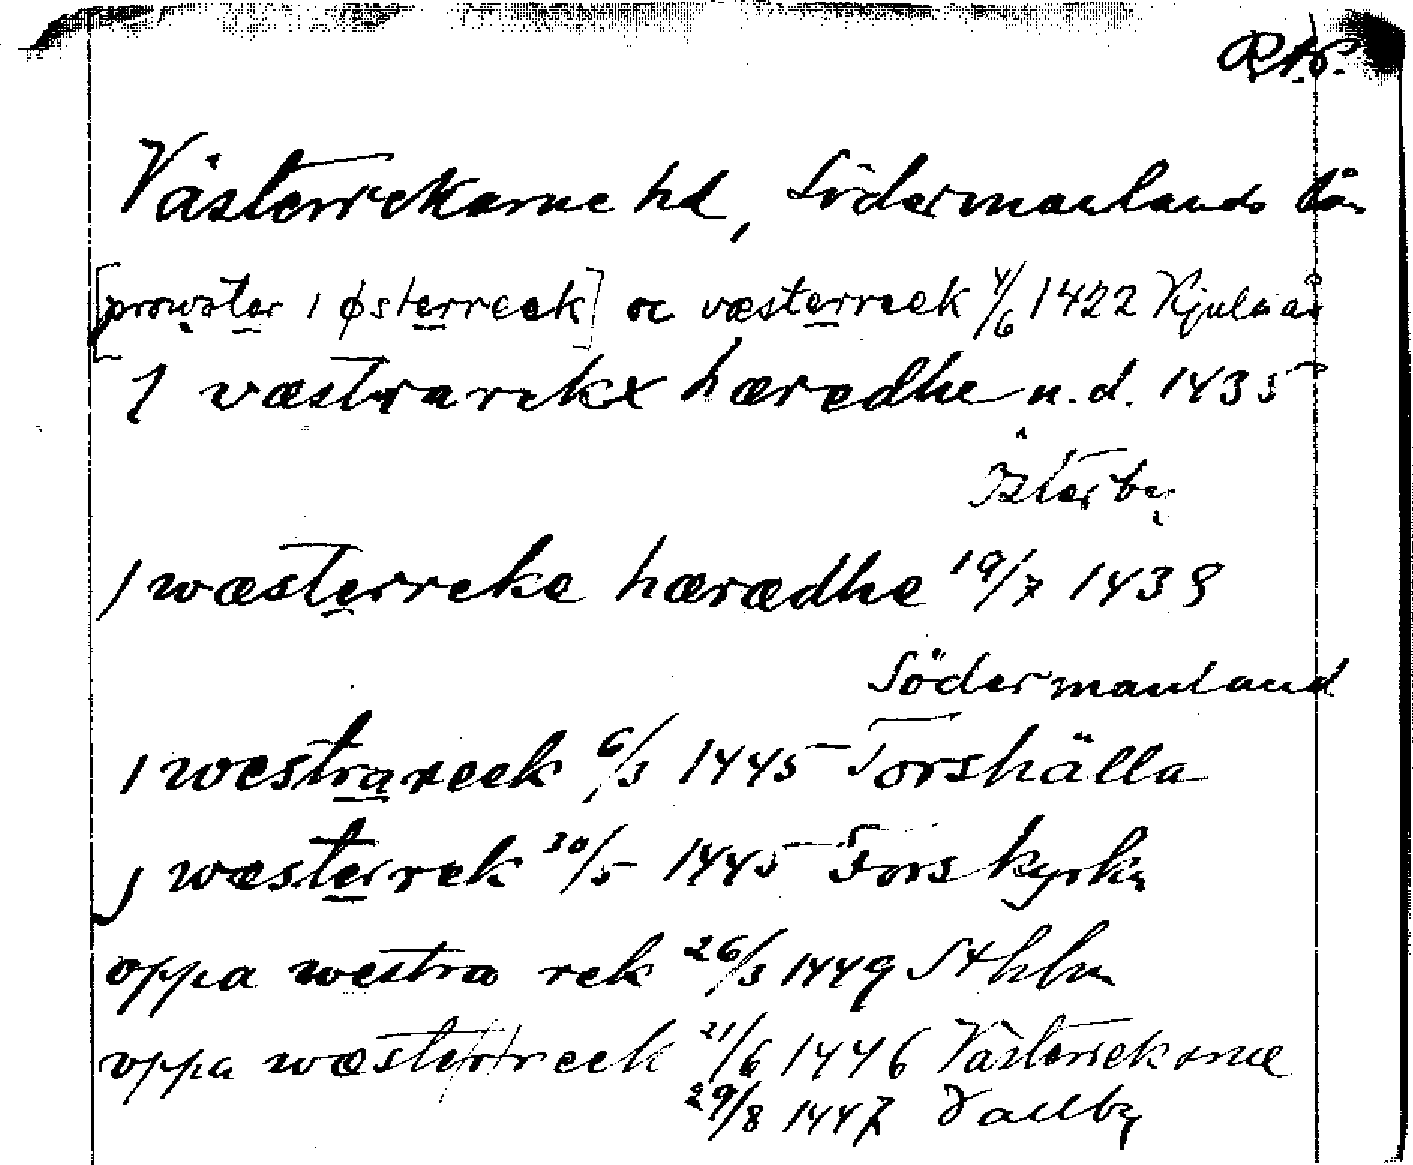 Västerrekarne hd, Södermanlands län
[prowster i østerreek] oc væsterreek 4/6 1422 Kjulaås
J væstrarekx hæredhe u.d. 1435
Åsterby
J wæsterreke hærædhe 19/7 1439
Södermanland
J westrareek 6/3 1445 Torshälla
J wæsterrek 30/5 1445 Fors kyrka
oppa westra rek 26/3 1449 Sthlm
oppa wæsterreek 21/6 1446 Västerrekarne
29/8 1447 Vallby